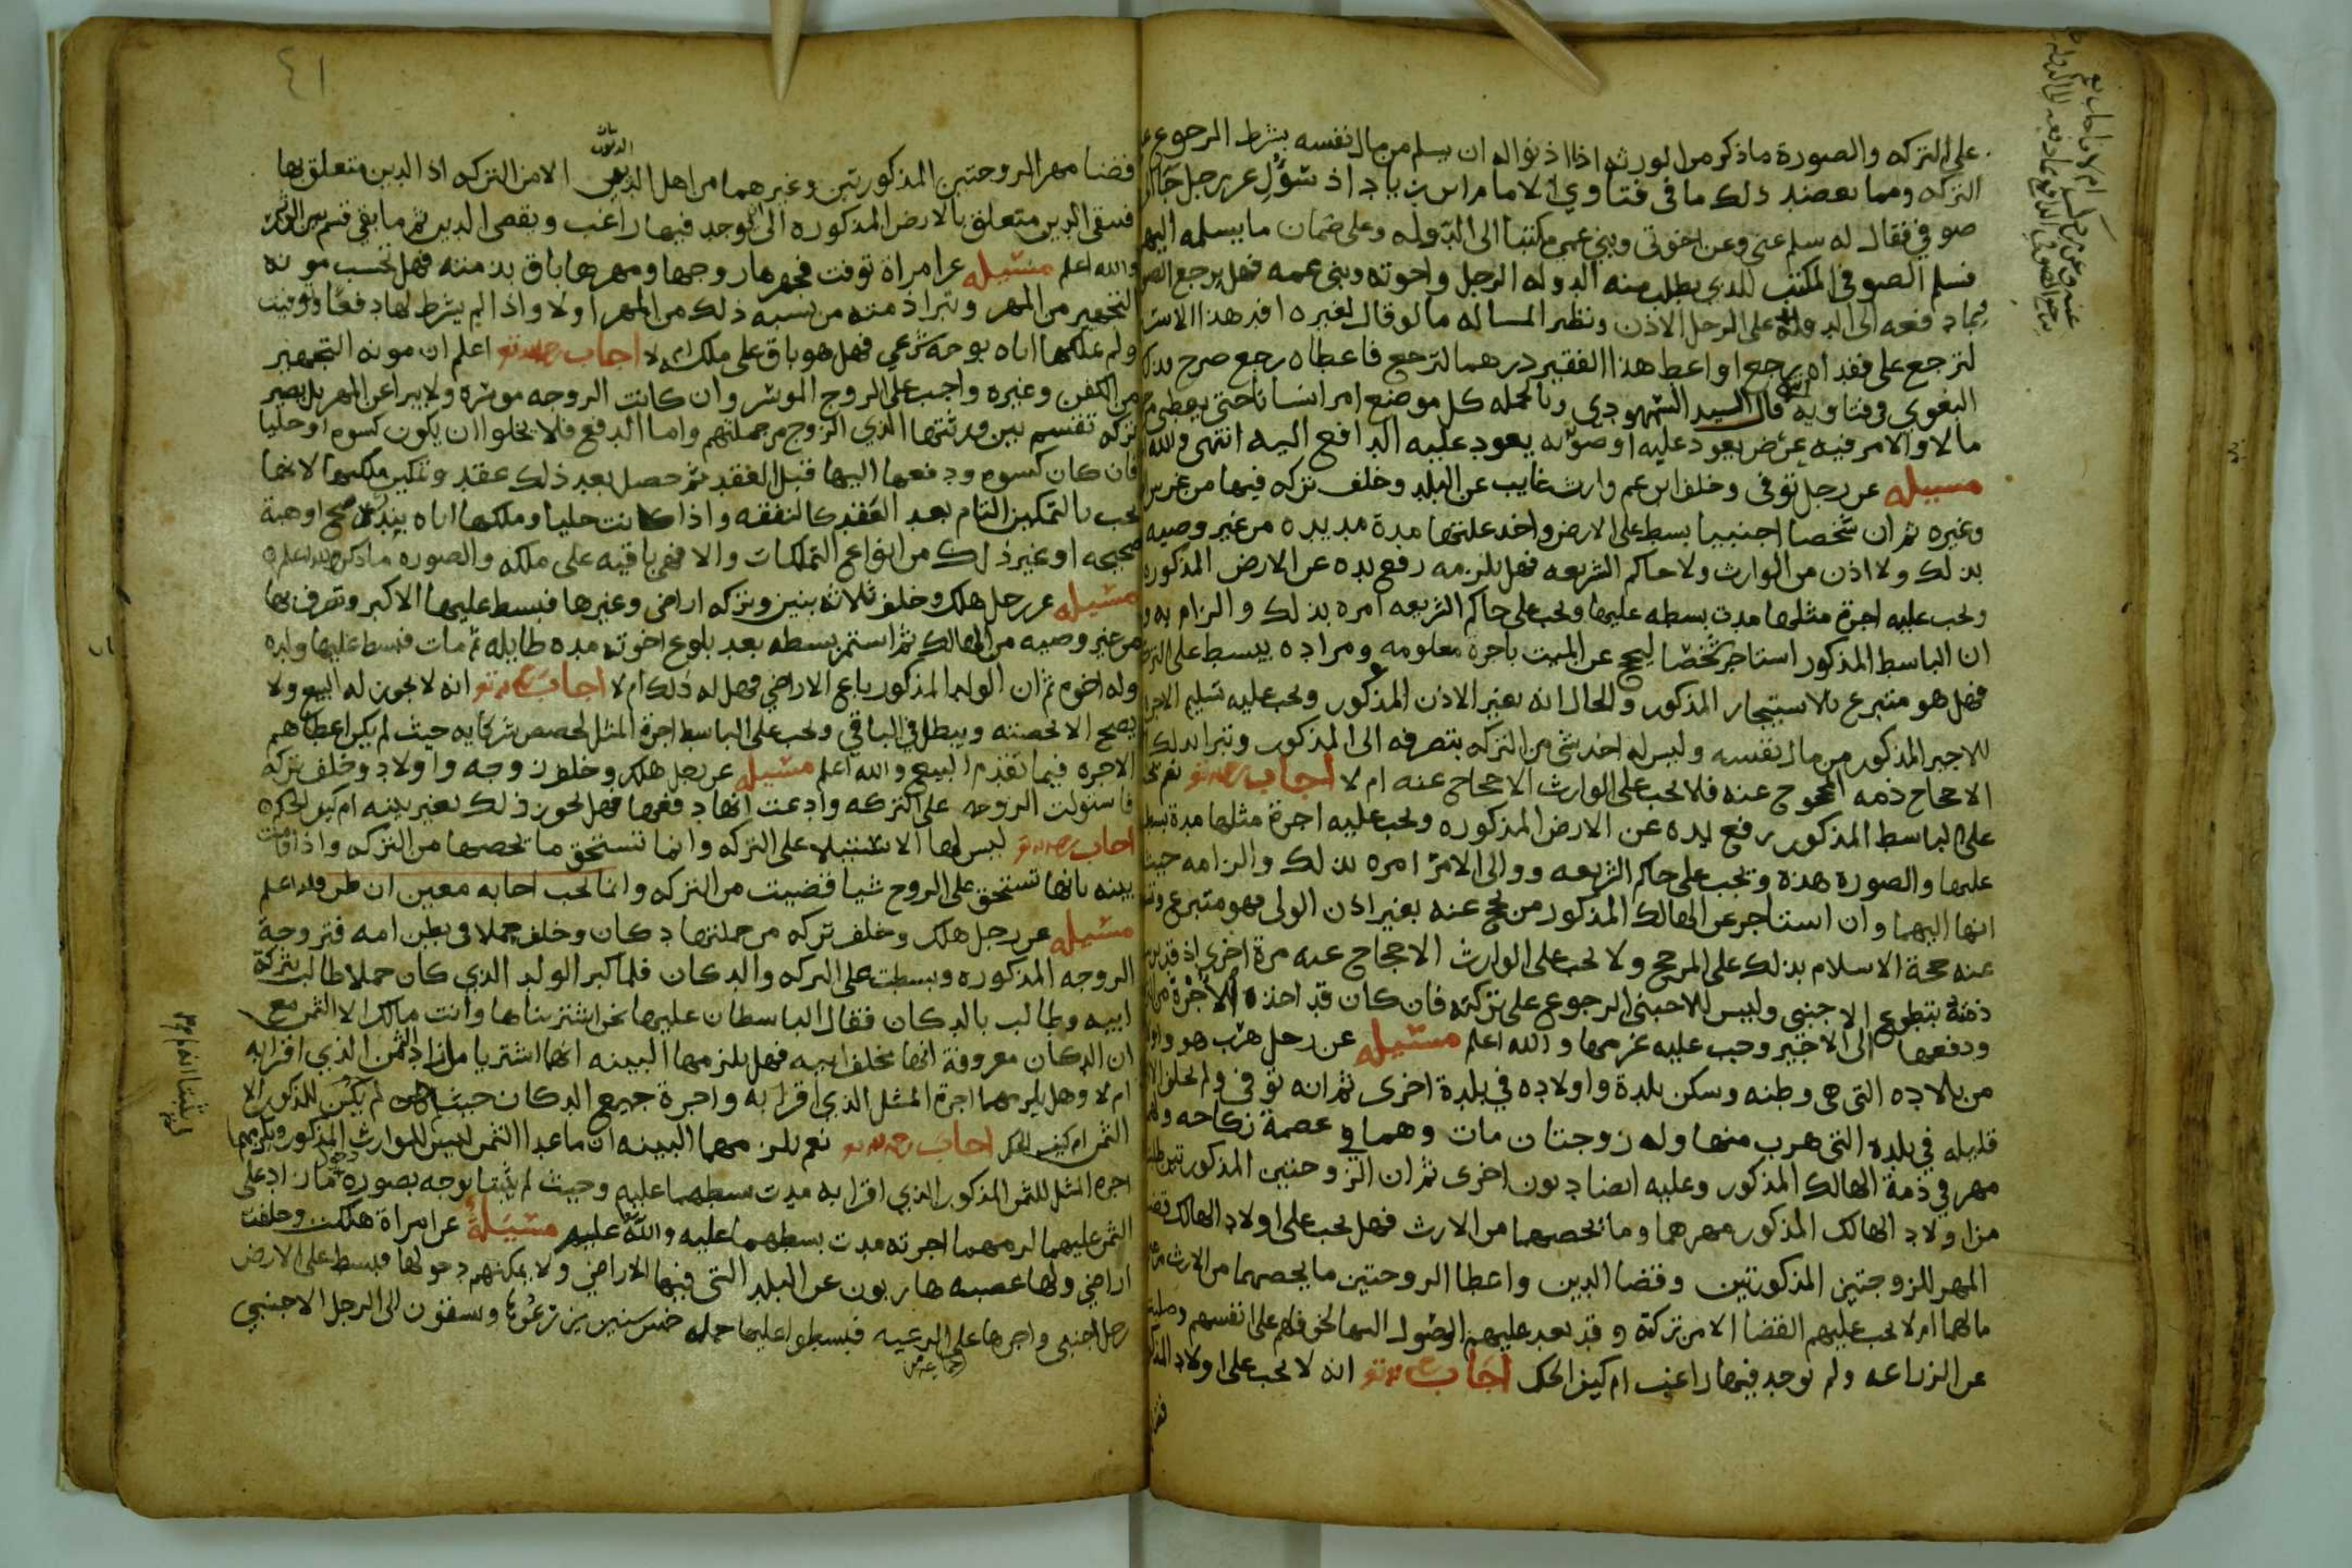 على التركه والصورة ماذكر من الورثه اذا اذنوا له ان يسلم من مال نفسه بشرط الرجوع
التركه ومما يعضد ذلك ما في فتاوي الامام ابن زياد اذ سُؤل عن رجل
صوفي فقال له سلم عني وعن اخوتي وبني عمي مكتبنا الى الدوله وعلى ضمان ما يسلمه اليهم
فسلم الصوفي المكتب الذي يطلب منه الدوله الرجل واخوته وبني عمه فهل يرجع
بما دفعه الى الدوله على الرجل الاذن ونظير المساله ما لو قال لغيره افد هذا الاسير
لترجع علي ففداه يرجع او اعط هذا الفقير درهما لترجع فاعطاه رجع صرح بذلك
البغوي في فتاويه قال السيد السمهودي وبالجمله كل موضع امر انسانا حتى يعطي
مالا والامر فيه غرض يعود عليه او صونه يعود عليه الدافع اليه انتهى والله
مسيله عن رجل توفى وخلف ابن عم وارث غايب عن البلد وخلف تركه فيها من غرس
وغيره ثم ان شخصا اجنبيا بسط على الارض واخذ غلتها مدة مديده من غير وصيه
بذلك ولا اذن من الوارث ولا حاكم الشريعه فهل يلزمه رفع يده عن الارض المذكوره
ويجب عليه اجرة مثلها مدت بسطه عليها ويجب على حاكم الشريعه امره بذلك والزامه به
ان الباسط المذكور استاجر شخصا ليحج عن الميت باجرة معلومه ومراده يبسط على
فهل هو متبرع بالاستيجار المذكور والحال انه بغير الاذن المذكور ويجب عليه تسليم
للاجير المذكور من مال نفسه وليس له اخذ شي من التركه بتصرفه الى المذكور وتبرا بذلك
الاحجاج ذمه المحجوج عنه فلا يجب على الوارث الاحجاج عنه ام لا اجاب نعم
على الباسط المذكور رفع يده عن الارض المذكوره ويجب عليه اجرة مثلها مدة بسطه
عليها والصورة هذه ويجب على حاكم الشريعه ووالى الامر امره بذلك والزامه حيث
انها اليهما وان استاجر عن الهالك المذكور من يحج عنه بغير اذن الولى فهو متبرع
عنه حجة الاسلام بذلك على المرجح ولا يجب على الوارث الاحجاج عنه مرة اخرى اذ قد
ذمته بتطوع الاجنبي وليس للاجنبي الرجوع على تركته فان كان قد اخذه الاجرة
ودفعها الى الاجير وجب عليه غرمها والله اعلم مسيله عن رجل هرب هو واولاده
من بلاده التى هى وطنه وسكن بلدة واولاده في بلدة اخرى ثم انه توفى ولم يخلف
قليله في بلده التى هرب منها وله زوجتان مات وهما في عصمة نكاحه
مهر في ذمة الهالك المذكور وعليه ايضا ديون اخرى ثم ان الزوجتين المذكورتين
من اولاد الهالك المذكور مهرهما وما يخصهما من الارث فهل يجب على اولاد الهالك
المهر للزوجتين المذكورتين وقضا الدين واعطا الزوجتين ما يخصهما من الارث
مالهما ام لا يجب عليهم القضا الا من تركته وقد بعد عليهم الوصول اليها لخوفهم على انفسهم
عن الزراعه ولم يوجد فيها راغب ام كيف الحكم اجاب انه لا يجب على اولاد
٤١
قضا مهر الزوجتين المذكورتين وغيرهما من اهل الديون الا من التركه اذ الدين متعلق بها
فيبقى الدين متعلق بالارض المذكوره الى ان يوجد فيها راغب ويقضى الدين ثم ما بقي قسم بين
والله اعلم مسيله عن امراة توفت فجهزها زوجها ومهرها باق بذمته فهل تحسب مونة
التجهيز من المهر وتبرا ذمته من نسبه ذلك من المهر او لا واذا لم يشرط لها دفعا وتوفيت
ولم يملكها اياه بوجه شرعي فهل هو باق على ملكه ام لا اجاب اعلم ان مونه التجهيز
من الكفن وغيره واجب على الزوج الموسر وان كانت الزوجه موسره ولا يبرا عن المهر بل يصير
تركه تقسم بين ورثتها الذي الزوج من جملتهم واما الدفع فلا يخلوا ان يكون كسوه او حليا
فان كان كسوه ودفعها اليها قبل العقد ثم حصل بعد ذلك عقد وتمكين ملكتها لانها
تجب بالتمكين التام بعد العقد كالنفقه واذا كانت حليا وملكها اياه بنذر صحيح او هبة
صحيحه او غير ذلك من انواع التملكات والا فهي باقيه على ملكه والصوره ماذكر والله اعلم
مسيله عن رجل هلك وخلف ثلاثه بنين وتركه اراضي وغيرها فبسط عليها الاكبر وتصرف بها
من غير وصيه من الهالك ثم استمر بسطه بعد بلوغ اخوته مده طايله ثم مات فبسط عليها ولده
وله اخوه ثم ان الولد المذكور باع الاراضي فهل له ذلك ام لا اجاب انه لا يجوز له البيع ولا
يصح الا بحصته ويبطل في الباقي ويجب على الباسط اجرة المثل لحصص شركايه حيث لم يكن اعطاهم
الاجره فيما تقدم البيع والله اعلم مسيله عن رجل هلك وخلف زوجه واولاد وخلف تركه
فاستولت الزوجه على التركه وادعت انها دفعها فهل يجوز ذلك بغير بينه ام كيف الحكم
اجاب ليس لها الاستيلا على التركه وانما تستحق ما يخصها من التركه واذا اقامت
بينه بانها تستحق على الزوج شيا قضيت من التركه وانما يجب اجابه معين ان والله اعلم
مسيله عن رجل هلك وخلف تركه من جملتها دكان وخلف حملا في بطن امه فتزوجة
الزوجه المذكوره وبسطت على التركه والدكان فلما كبر الولد الذي كان حملا طالب بتركة
ابيه وطالب بالدكان فقال الباسطان عليها نحن اشتريناها وانت مالك الا الثمن مع
ان الدكان معروفة انها مخلف ابيه فهل يلزمها البينه انها اشتريا ما زاد الثمن الذي اقرا به
ام لا وهل يلزمهما اجرة المثل الذي اقرا به واجرة جميع الدكان حيث لم يكن للمذكور الا
الثمن ام كيف الحكم اجاب نعم يلزمهما البينه ان ماعدا الثمن ليس للوارث المذكور ويلزمهما
اجره المثل للثمن المذكور الذي اقرا به مدت بسطهما عليه وحيث لم يثبتا بوجه بصوره ما زاد على
الثمن عليهما لزمهما اجرته مدت بسطهما عليه والله عليم مسيلة عن امراة هلكت وخلفت
اراضي ولها عصبه هاربون عن البلد التى فيها الاراضي ولا يمكنهم دخولها فبسط على الارض
رجل اجنبي واجرها على الرعيه فبسطوا عليها جمله خمس سنين يزرعوها ويسقون الى الرجل الاجنبي